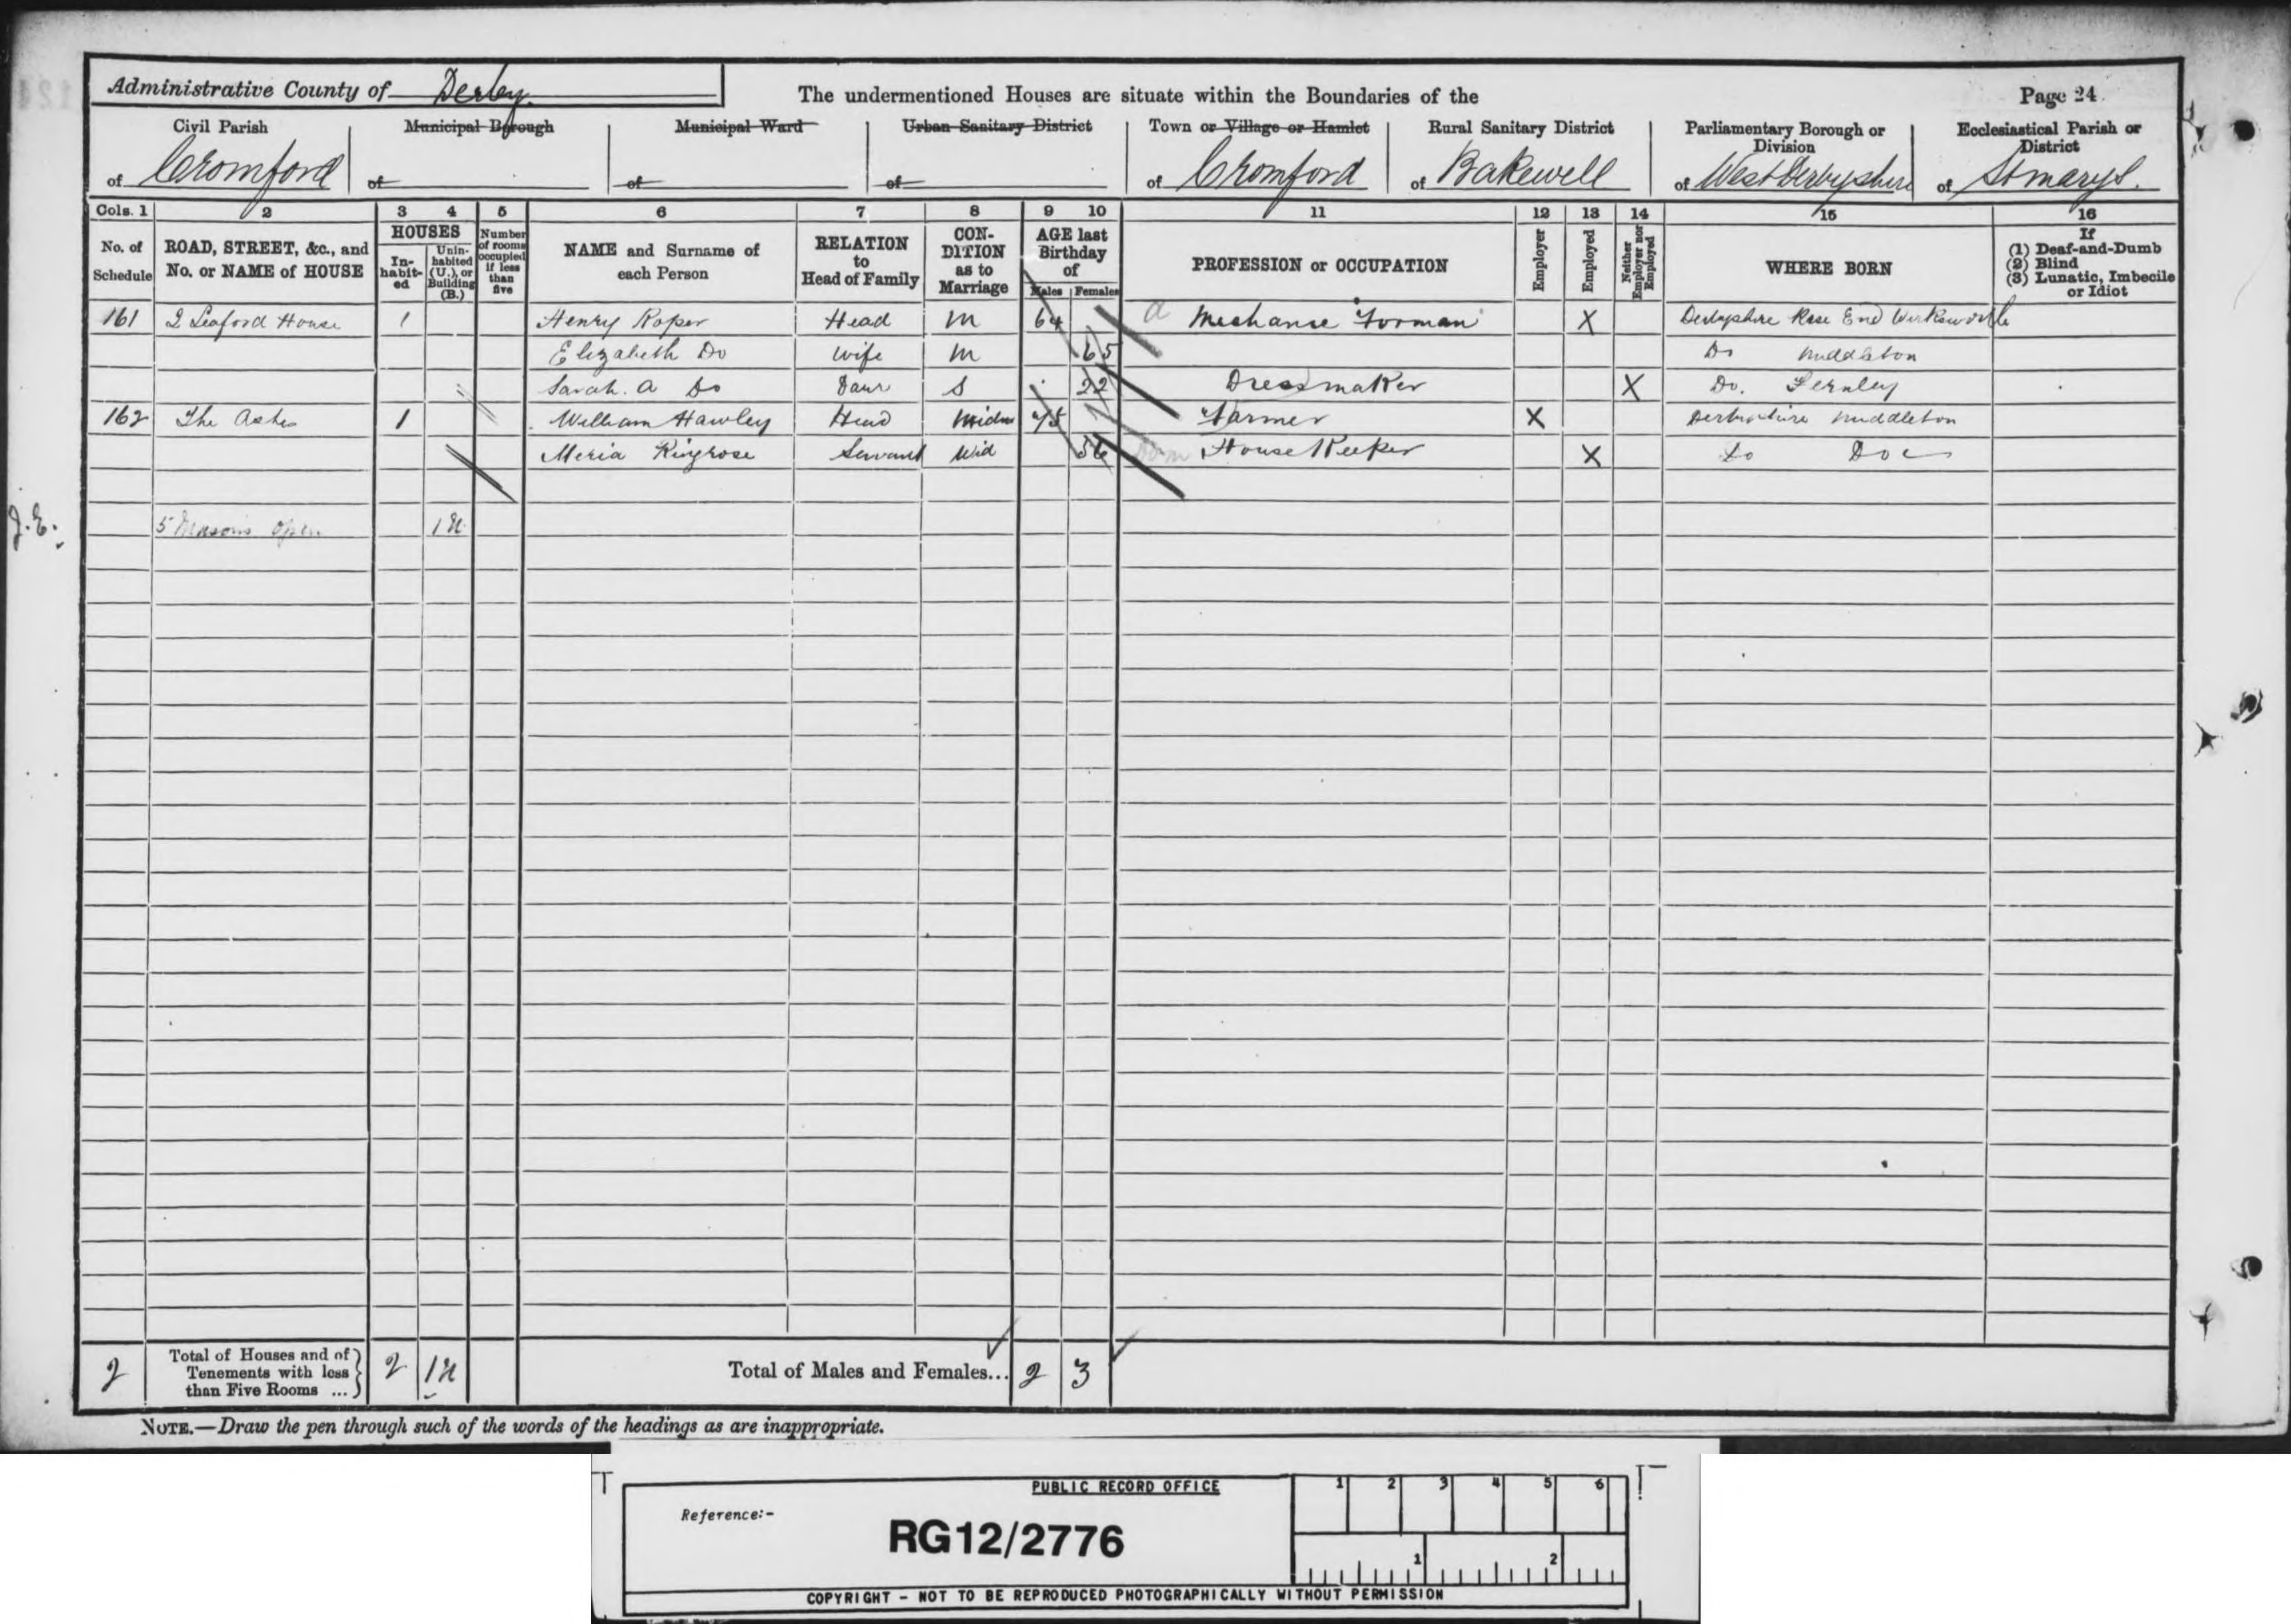 Administrative County of Derby
The undermentioned Houses are situate within the Boundaries of the
Page 24
Civil Parish
Municipal Borough
Municipal Ward
Urban Sanitary District
Town or Village or Hamlet
Rural Sanitary District
Parliamentary Borough or Division
Ecclesiastical Parish or District
of Cromford
of
of
of
of Cromford
of Bakewell
of West Derbyshire
of St marys.
Cols. 1 2 3 4 5 6 7 8 9 10 11 12 13 14 15 16
No. of Schedule
ROAD, STREET, &c., and No. or NAME of HOUSE
HOUSES
In-habit-ed
Unin-habited (U.), or Building (B.)
Number of rooms occupied if less than five
NAME and Surname of each Person
RELATION to Head of Family
CON-DITION as to Marriage
AGE last Birthday of
Males Females
PROFESSION or OCCUPATION
Employer
Employed
Neither Employer nor Employed
WHERE BORN
If
(1) Deaf-and-Dumb
(2) Blind
(3) Lunatic, Imbecile or Idiot
161 2 House 1 Henry Roper Head M 64 Mechanic Forman X Derbyshire Rose End Wirksworth
Elizabeth Do Wife M 65 Do Middleton
Sarah. A Do Daur S 22 Dressmaker X Do.
162 The Ashes 1 William Hawley Head Widr 75 Farmer X Derbyshire Middleton
Meria Ringrose Servant Wid 56 House Keeper X Do Do
J.E.
5 Masons open 1 U
2 Total of Houses and of Tenements with less than Five Rooms ... 2 1U Total of Males and Females... 2 3
NOTE.—Draw the pen through such of the words of the headings as are inappropriate.
PUBLIC RECORD OFFICE
1 2 3 4 5 6
Reference:-
RG12/2776
1 2
COPYRIGHT - NOT TO BE REPRODUCED PHOTOGRAPHICALLY WITHOUT PERMISSION